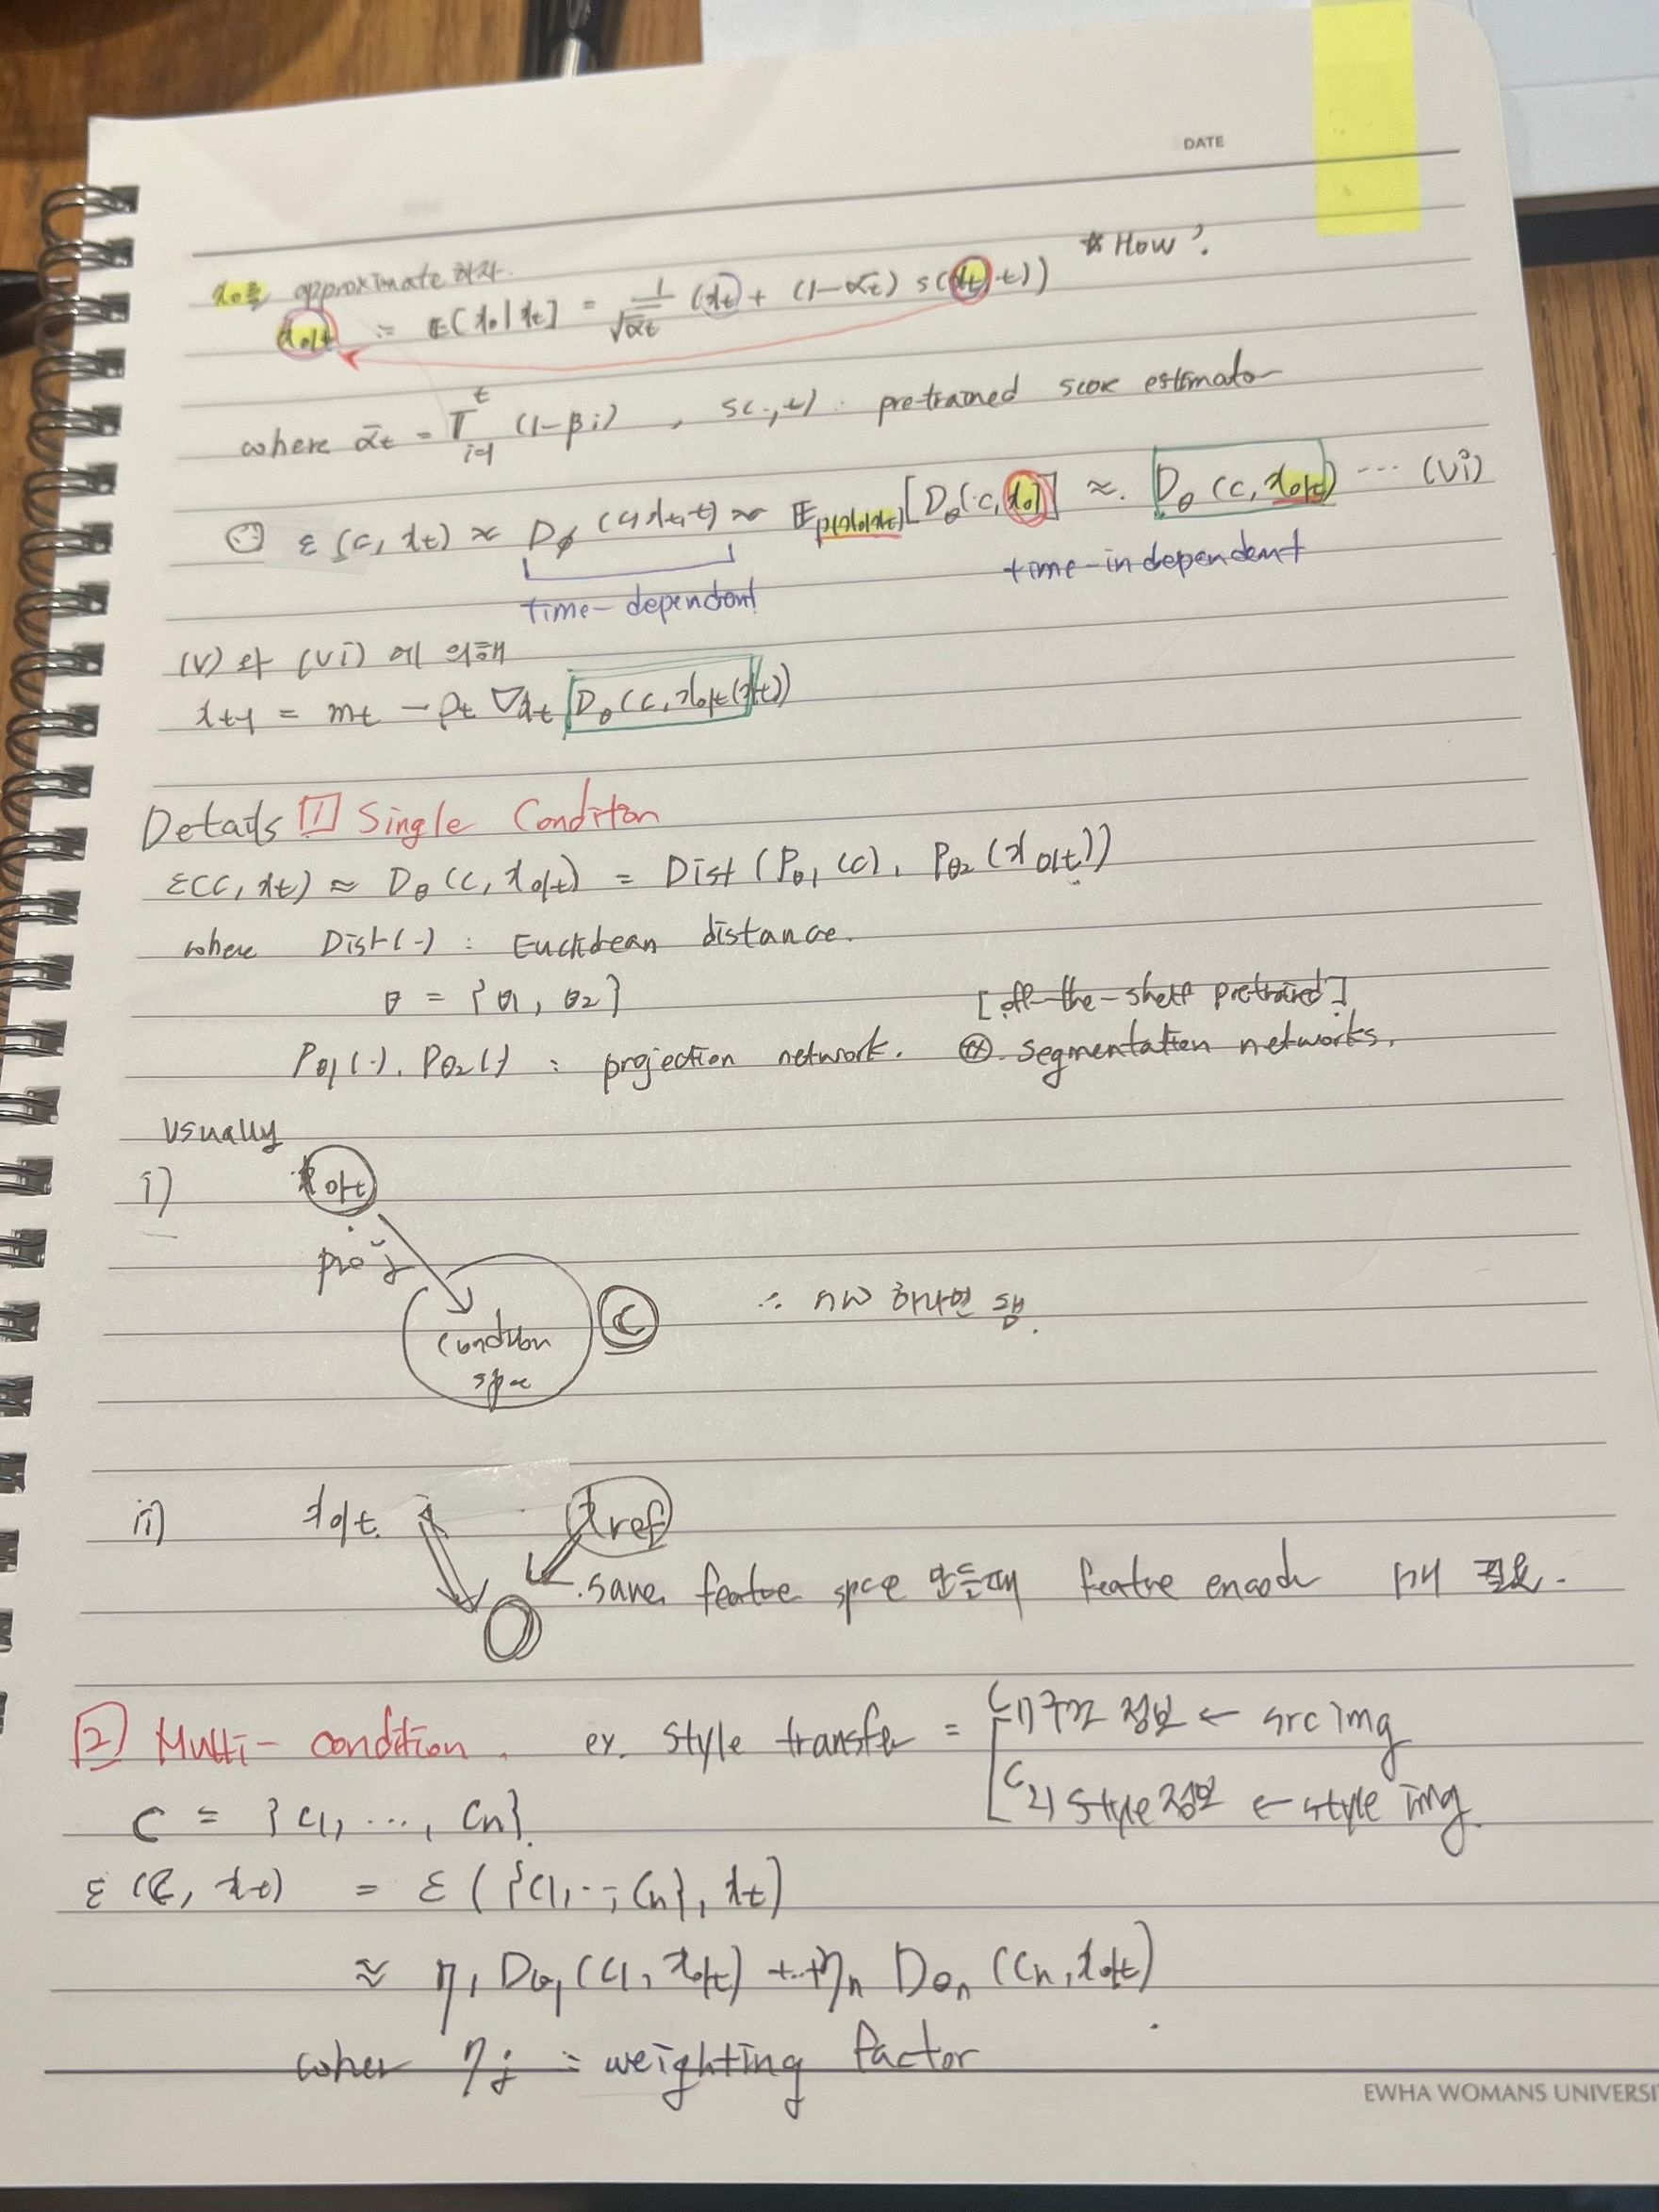 DATE
x₀를 approximate 하자. * How?
x₀|t := E[x₀|xt] = 1/√ᾱt (xt + (1-ᾱt) s(xt, t))
where ᾱt = Π^t_{i=1} (1-βi) , s(·,t) : pretrained score estimator
ε(c, xt) ≈ Dφ(c, xt, t) ≈ E_{p(x₀|xt)}[Dθ(c, x₀)] ≈. Dθ(c, x₀|t) ... (vi)
time-dependent time-independent
(v) 와 (vi) 에 의해
xt-1 = mt - ρt ∇xt Dθ(c, x₀|t(xt))
Details 1 Single Conditon
ε(c, xt) ≈ Dθ(c, x₀|t) = Dist(Pθ₁(c), Pθ₂(x₀|t))
where Dist(·) : Euclidean distance.
θ = {θ₁, θ₂} [off-the-shelf pretrained]
Pθ₁(·), Pθ₂(·) : projection network. segmentation networks.
Usually
i) x₀|t
proj
condition space C ∴ nw 하나면 됨.
ii) x₀|t xref
same feature space 만들때 feature encoder 1개 필요.
2 Multi-condition. ex. style transfer = C₁) 구조 정보 ← src img
C₂) style 정보 ← style img
C = {C₁, ..., Cn}.
ε(C, xt) = ε({C₁, ··, Cn}, xt)
≈ η₁ Dθ₁(C₁, x₀|t) + ··· + ηn Dθn(Cn, x₀|t)
where ηj : weighting factor
EWHA WOMANS UNIVERSI